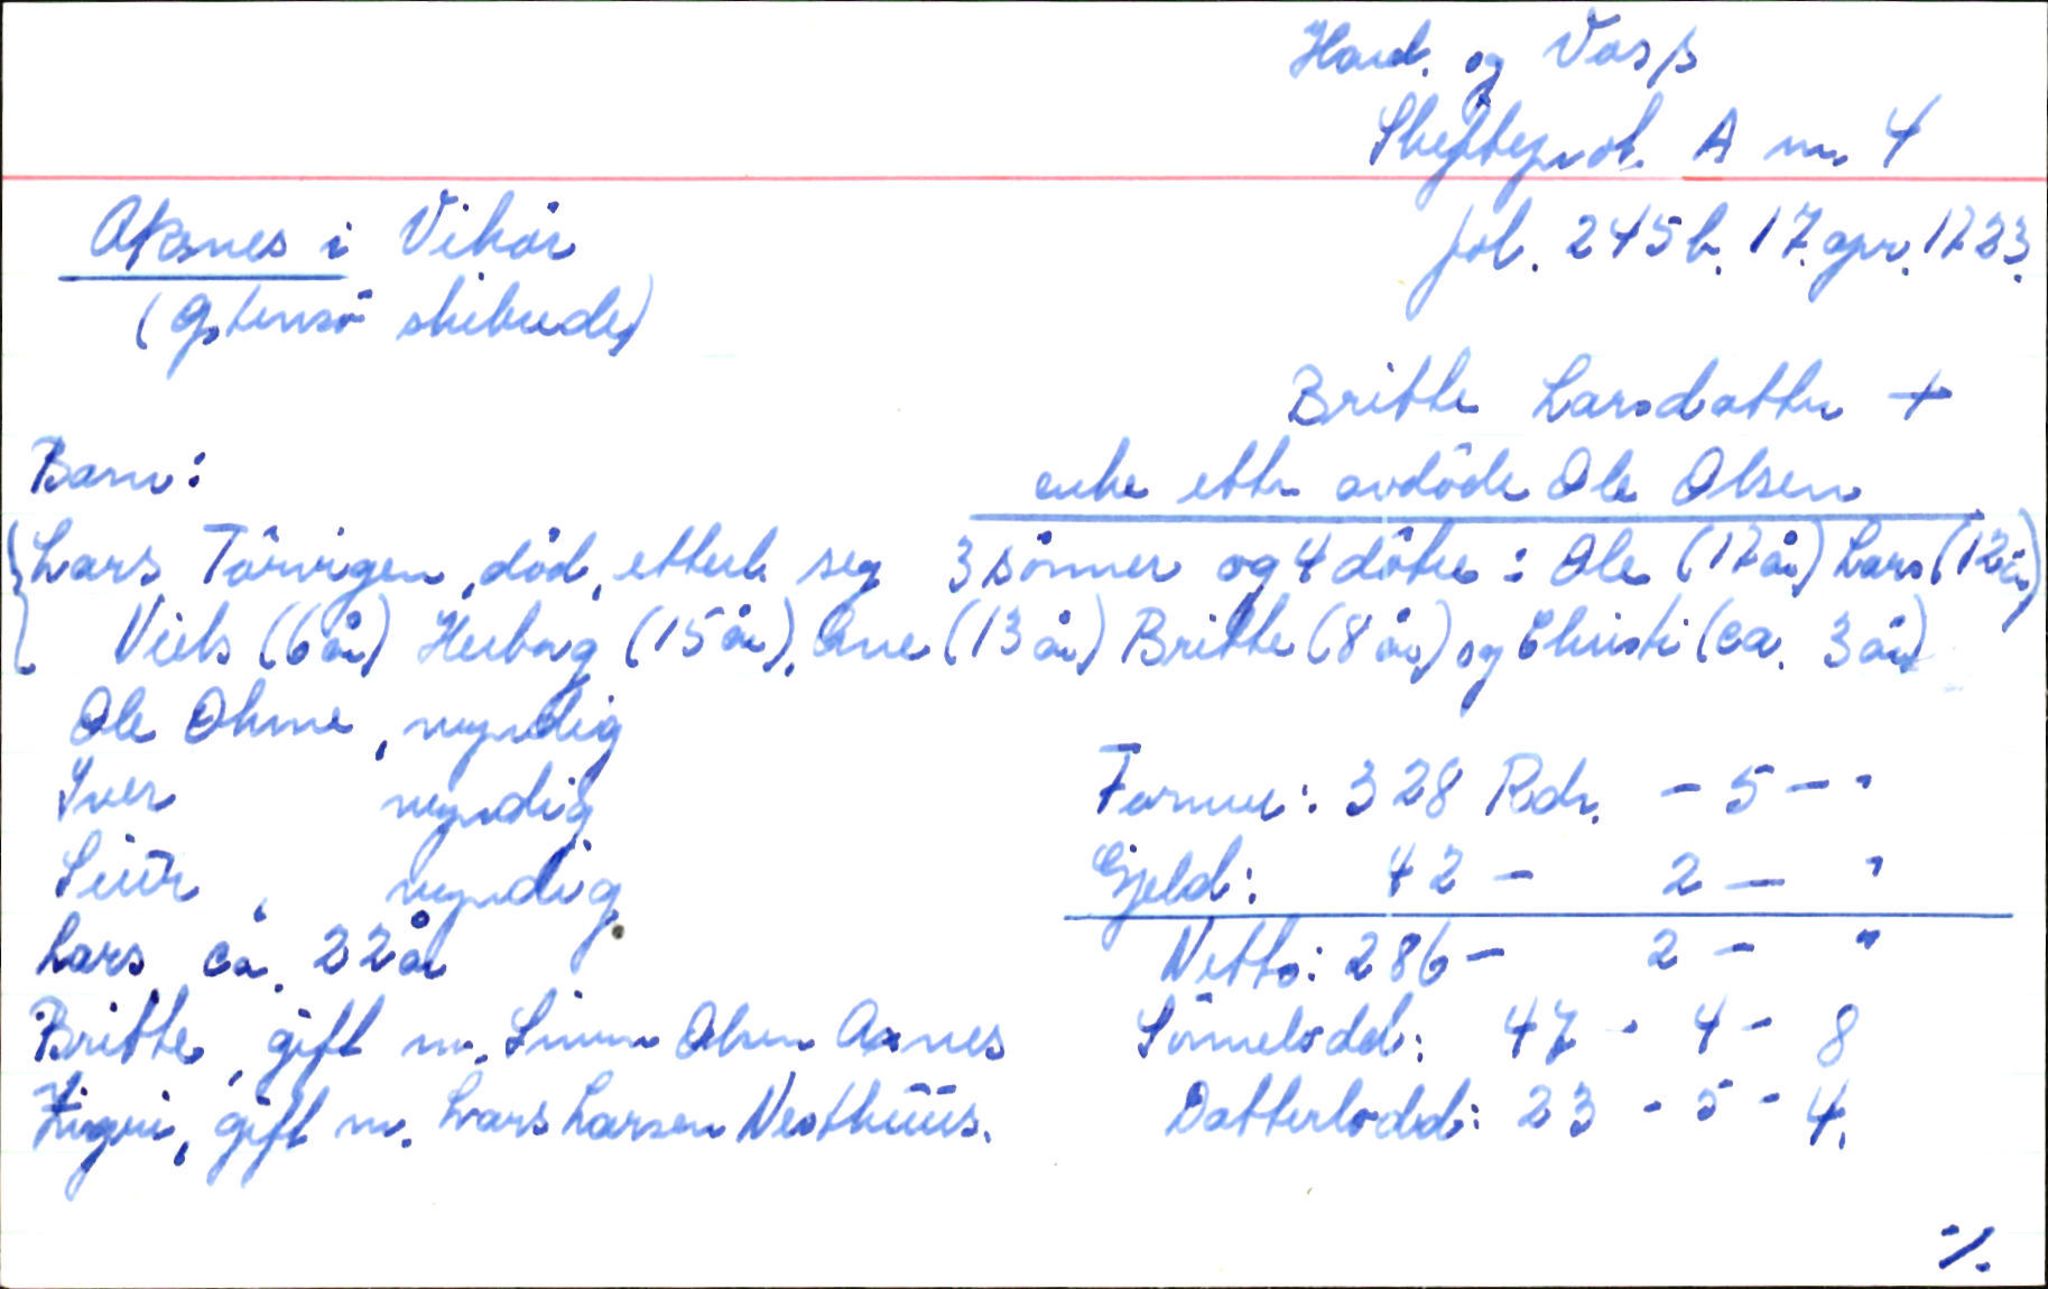 Hard. og Voss
Skifteprot. A nr. 4
Aksnes i Vikör
fol. 245b. 17. apr. 1723.
(Östensö skibrede)
Britte Larsdatter +
Barn:
enke etter avdöde Ole Olsen
Lars Törvigen, död, etterl. seg 3 sönner og 4 dötre: Ole (17 år) Lars (12 år)
Niels (6 år) Herborg (15 år), Ane (13 år) Britte (8 år) og Christi (ca. 3 år)
Ole Ohme, myndig
Iver myndig
Formue: 328 Rdr. - 5 - "
Siur, myndig
Gjeld: 42 - 2 - "
Lars, ca. 22 år
Netto: 286 - 2 - "
Britte, gift m. Simen Olsen Axnes
Sönnelodd: 47 - 4 - 8
Zigri, gift m. Lars Larsen Nesthuus.
Datterlodd: 23 - 5 - 4.
./.